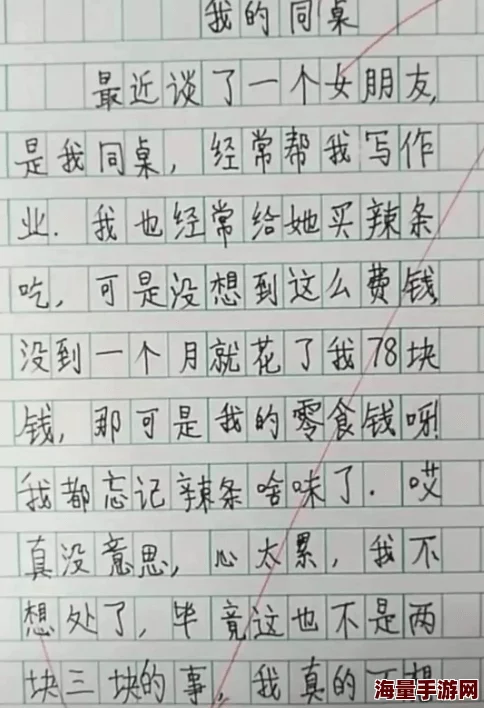 我的同桌
最近谈了一个女朋友,
是我同桌，经常帮我写作
业．我也经常给她买辣条
吃，可是没想到这么费钱,
没到一个月就花了我78块
钱，那可是我的零食钱呀!
我都忘记辣条啥味了．哎
真没意思，心太累，我不
想处了，毕竟这也不是两
块三块的事，我真的
海量手游网
www.hailiangip.com